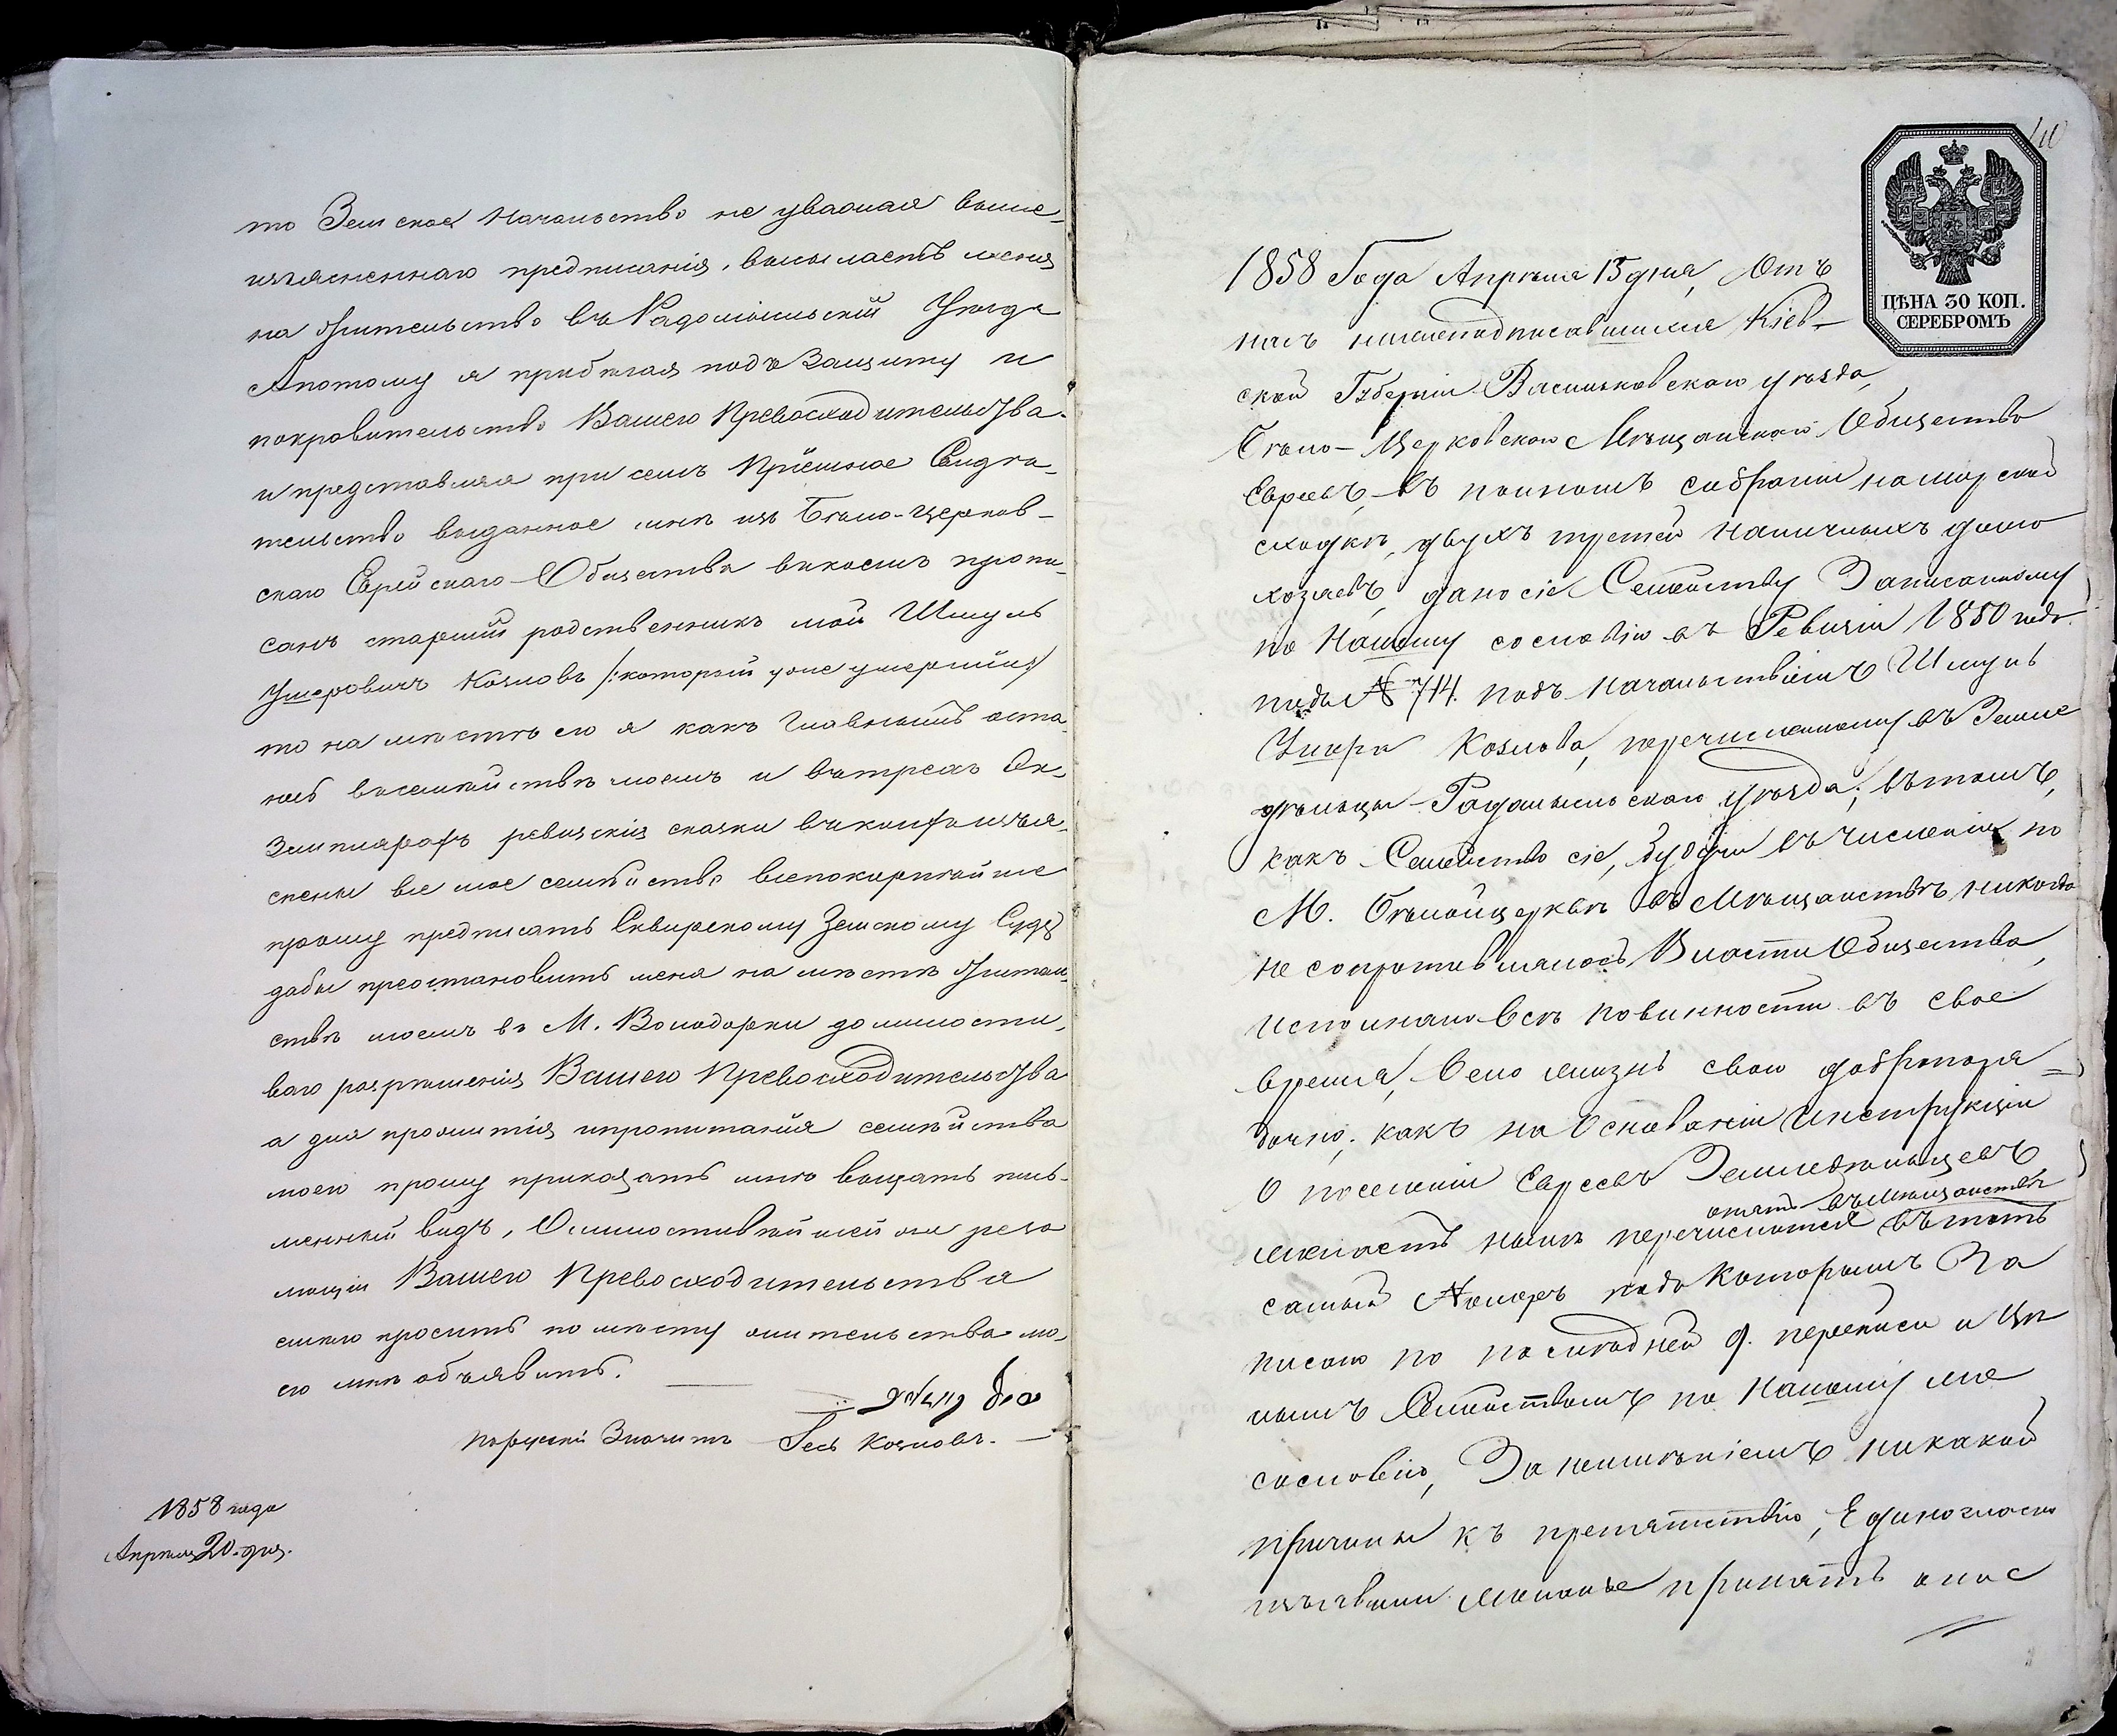 то Земское Начальство не уважая выше-
изъясненнаго предписанія, высылаетъ меня
на жительство въ Радомысльскій Уѣздъ
А потому я прибѣгая подъ Защиту и
покровительство Вашего Превосходительства
и представляя при семъ Пріемное Свидѣ-
тельство выданное мнѣ изъ Бѣло-Церков-
скаго Еврейскаго Общества вкоемъ пропи-
санъ старшій родственникъ мой Шмуль
Умеровичъ Козловъ /:который уже умершій:/
то на мѣсто его я какъ Главнымъ оста-
юсь в семействѣ моемъ и въ трехъ Эк-
земплярахъ ревизскія сказки въ коихъ изъя-
снены все мое семѣйство всепокорнѣйше
прошу предписать Сквирскому Земскому Суду
дабы преостановить меня на мѣстѣ жител-
ствѣ моемъ въ М. Володарки до милости-
ваго разрѣшенія Вашего Превосходительства
а для прожитія ипропитанія семѣйства
моего прошу приказать мнѣ выдать пись-
менный видъ, О милостивѣйшей же резо
люціи Вашего Превосходительства
смѣю просить по мѣсту жительства мо-
его мнѣ объявить.
порускій Значитъ Гесь Козловъ.
1858 года
Апрѣля 20. дня.
40
ЦѢНА 30 КОП.
СЕРЕБРОМЪ
1858 Года Апрѣля 15 дня, Отъ
насъ нижеподписавшихся Кіев-
ской Губерніи Васильковскаго уѣзда,
Бѣло-Церковскаго Мѣщанскаго Общества
Евреевъ, въ полномъ собраніи на мірской
сходкѣ, двухъ третей наличныхъ домо
хозяевъ, дано сіе Семейству Записанному
по Нашему сословію въ Ревизіи 1850 года
подъ № 714. подъ начальствіемъ Шмуль
Умера Козлова, перечисленному въ Земле
дѣльцы Радомысльскаго уѣзда; въ томъ,
какъ Семейство сіе, будучи въ численіи по
М. Бѣлойцеркви въ Мѣщанствѣ никогда
не сопротивлялось Власти Общества,
исполняло всѣ повинности въ свое
время, Вело жизнь свою добропоря=
дочно; какъ на Основаніи Инструкціи
О поселеніи Евреевъ Земледѣльцевъ
опять въ Мѣщанство
желаетъ нынѣ перечислится въ тотъ
самый Номеръ подъ Которымъ За
писано по послѣдней 9. переписи и цѣ
лымъ Семействомъ по Нашему же
сословію, За неимѣніемъ никакой
причины къ препятствію, Единогласно
изъявили желаніе принять оное